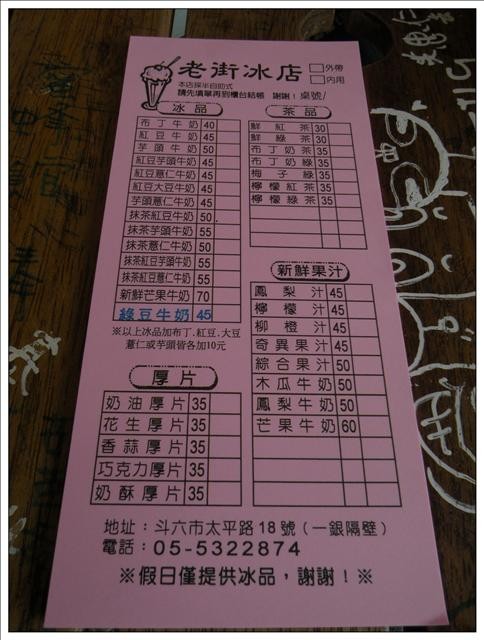 老街冰店
□外帶
□內用
本店採半自助式
請先填單再到櫃台結帳 謝謝！桌號/
冰品
布丁牛奶 40
紅豆牛奶 45
芋頭牛奶 50
紅豆芋頭牛奶 45
紅豆薏仁牛奶 45
紅豆大豆牛奶 45
芋頭薏仁牛奶 45
抹茶紅豆牛奶 50
抹茶芋頭牛奶 55
抹茶薏仁牛奶 50
抹茶紅豆芋頭牛奶 55
抹茶紅豆薏仁牛奶 55
新鮮芒果牛奶 70
綠豆牛奶 45
※以上冰品加布丁、紅豆、大豆
薏仁或芋頭皆各加10元
茶品
鮮紅茶 30
鮮綠茶 30
布丁奶茶 35
布丁奶綠 35
梅子綠 35
檸檬紅茶 35
檸檬綠茶 35
新鮮果汁
鳳梨汁 45
檸檬汁 45
柳橙汁 45
奇異果汁 45
綜合果汁 50
木瓜牛奶 50
鳳梨牛奶 50
芒果牛奶 60
厚片
奶油厚片 35
花生厚片 35
香蒜厚片 35
巧克力厚片 35
奶酥厚片 35
地址：斗六市太平路18號（一銀隔壁）
電話：05-5322874
※假日僅提供冰品，謝謝！※